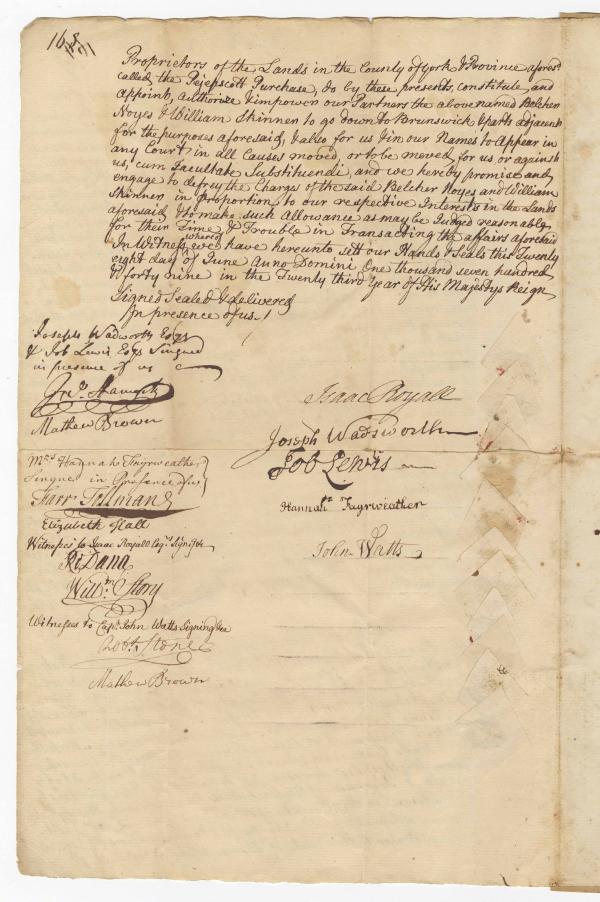 16
Proprietors of the Lands in the County of York & Province afores.d
called the Pejepscott Purchase, do by these presents, constitute, and
appoint, authorise & impower our Partners the above named Belcher
Noyes & William Skinner to go down to Brunswick & parts adjacent
for the purposes aforesaid, & also for us & in our Names to Appear in
any Court, in all Causes moved, or to be moved, for us or against
us, cum Facultate Substituendi, and we hereby promise and
engage to defrey the Charges of the said Belcher Noyes and William
Skinner in proportion to our respective Interests in the Lands
aforesaid & to make such Allowance as may be Judged reasonable
for their Time & Trouble in Transacting the affairs aforesaid
In Witness whereof we have hereunto sett our Hands & Seals this Twenty
eight day of June Anno Domini One thousand seven hundred
& forty nine in the Twenty third Year of His Majestys Reign
Signed Sealed & delivered
In presence of us
Joseph Wadworth Esq.r
& Job Lewis Esq.r Singned
in presence of us
Mathew Brown
Isaac Royall
Joseph Wadsworth
Job Lewis
M.rs Hannah Fayrweather
Singned in Presence of us
Farr Tollman
Elizabeth Hall
Hannah Fayrweather
Witnesses to Isaac Royall Esq.r Signing
R.d Dana
Will.m Story
John Watts
Witnesses to Cap.t John Watts Signing
Rob.t Stone
Mathew Brown